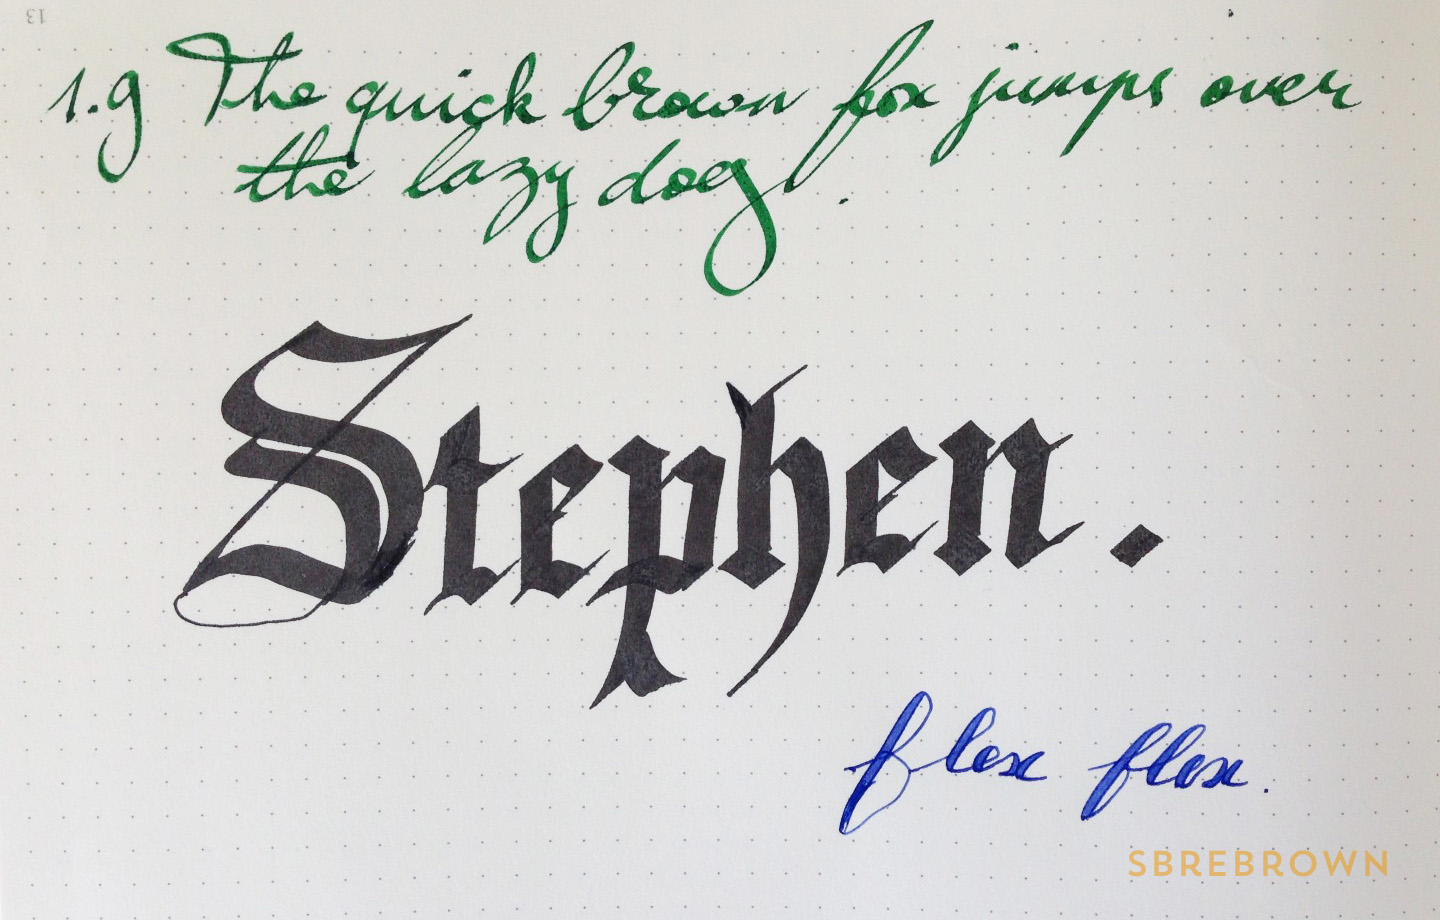 13
1.9 The quick brown fox jumps over
the lazy dog.
Stephen.
flex flex.
SBREBROWN